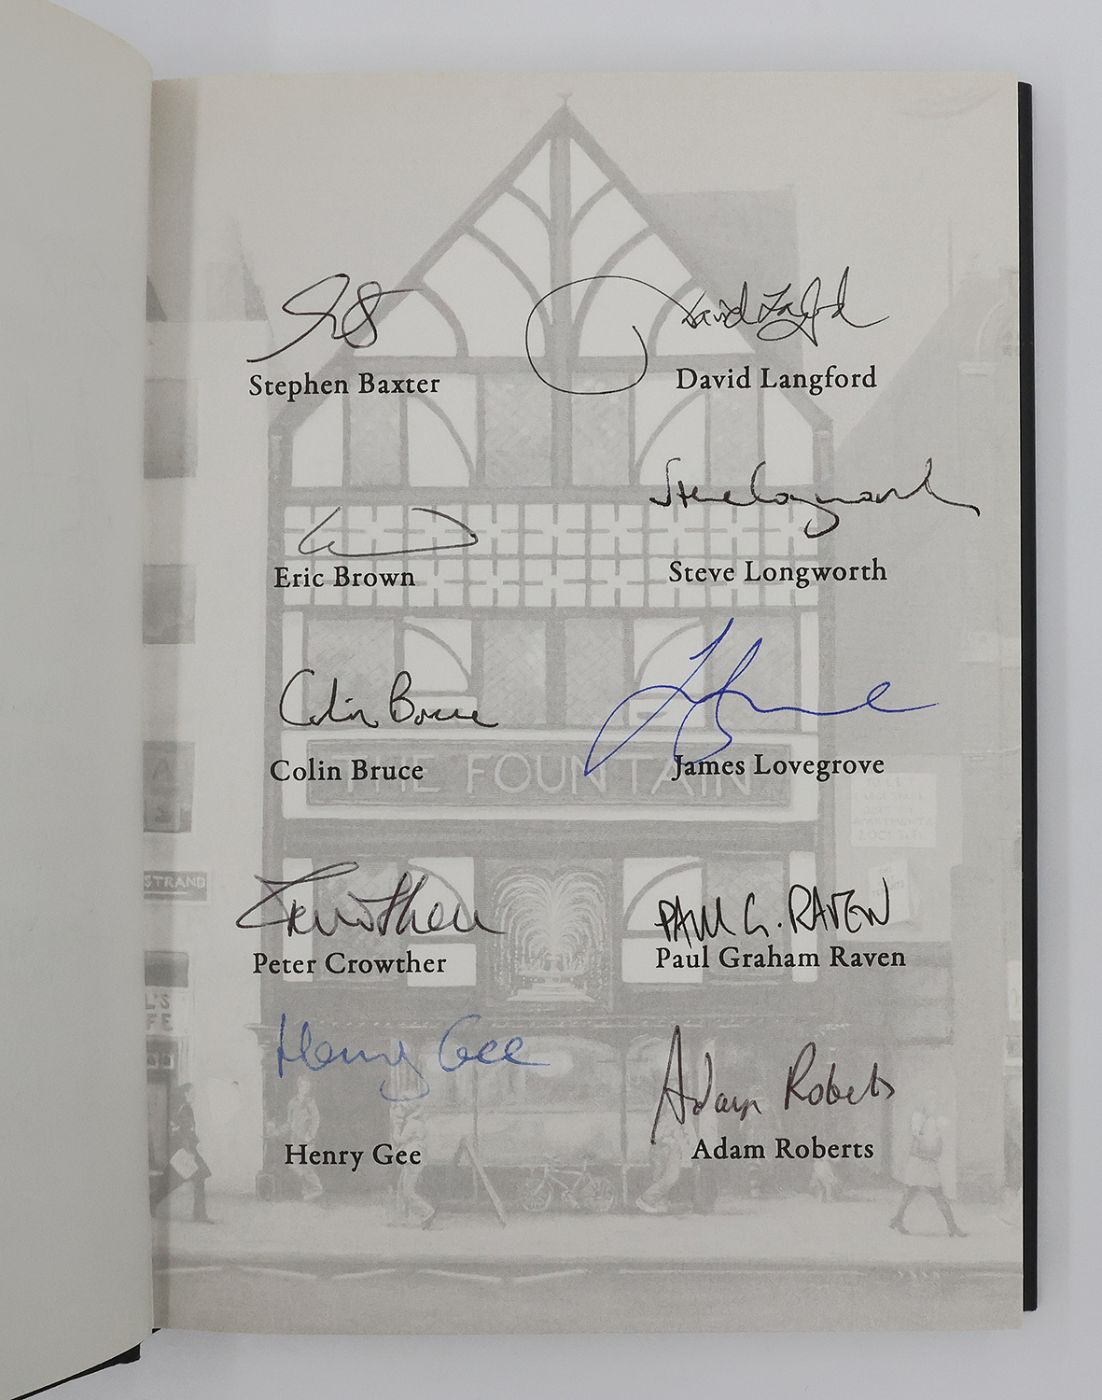 David Langford
Stephen Baxter
David Langford
Steve Longworth
Eric Brown
Steve Longworth
Colin Bruce
Colin Bruce
James Lovegrove
THE FOUNTAIN
STRAND
Crowther
PAUL G. RAVEN
Peter Crowther
Paul Graham Raven
L'S
FE
Henry Gee
Adam Roberts
Henry Gee
Adam Roberts